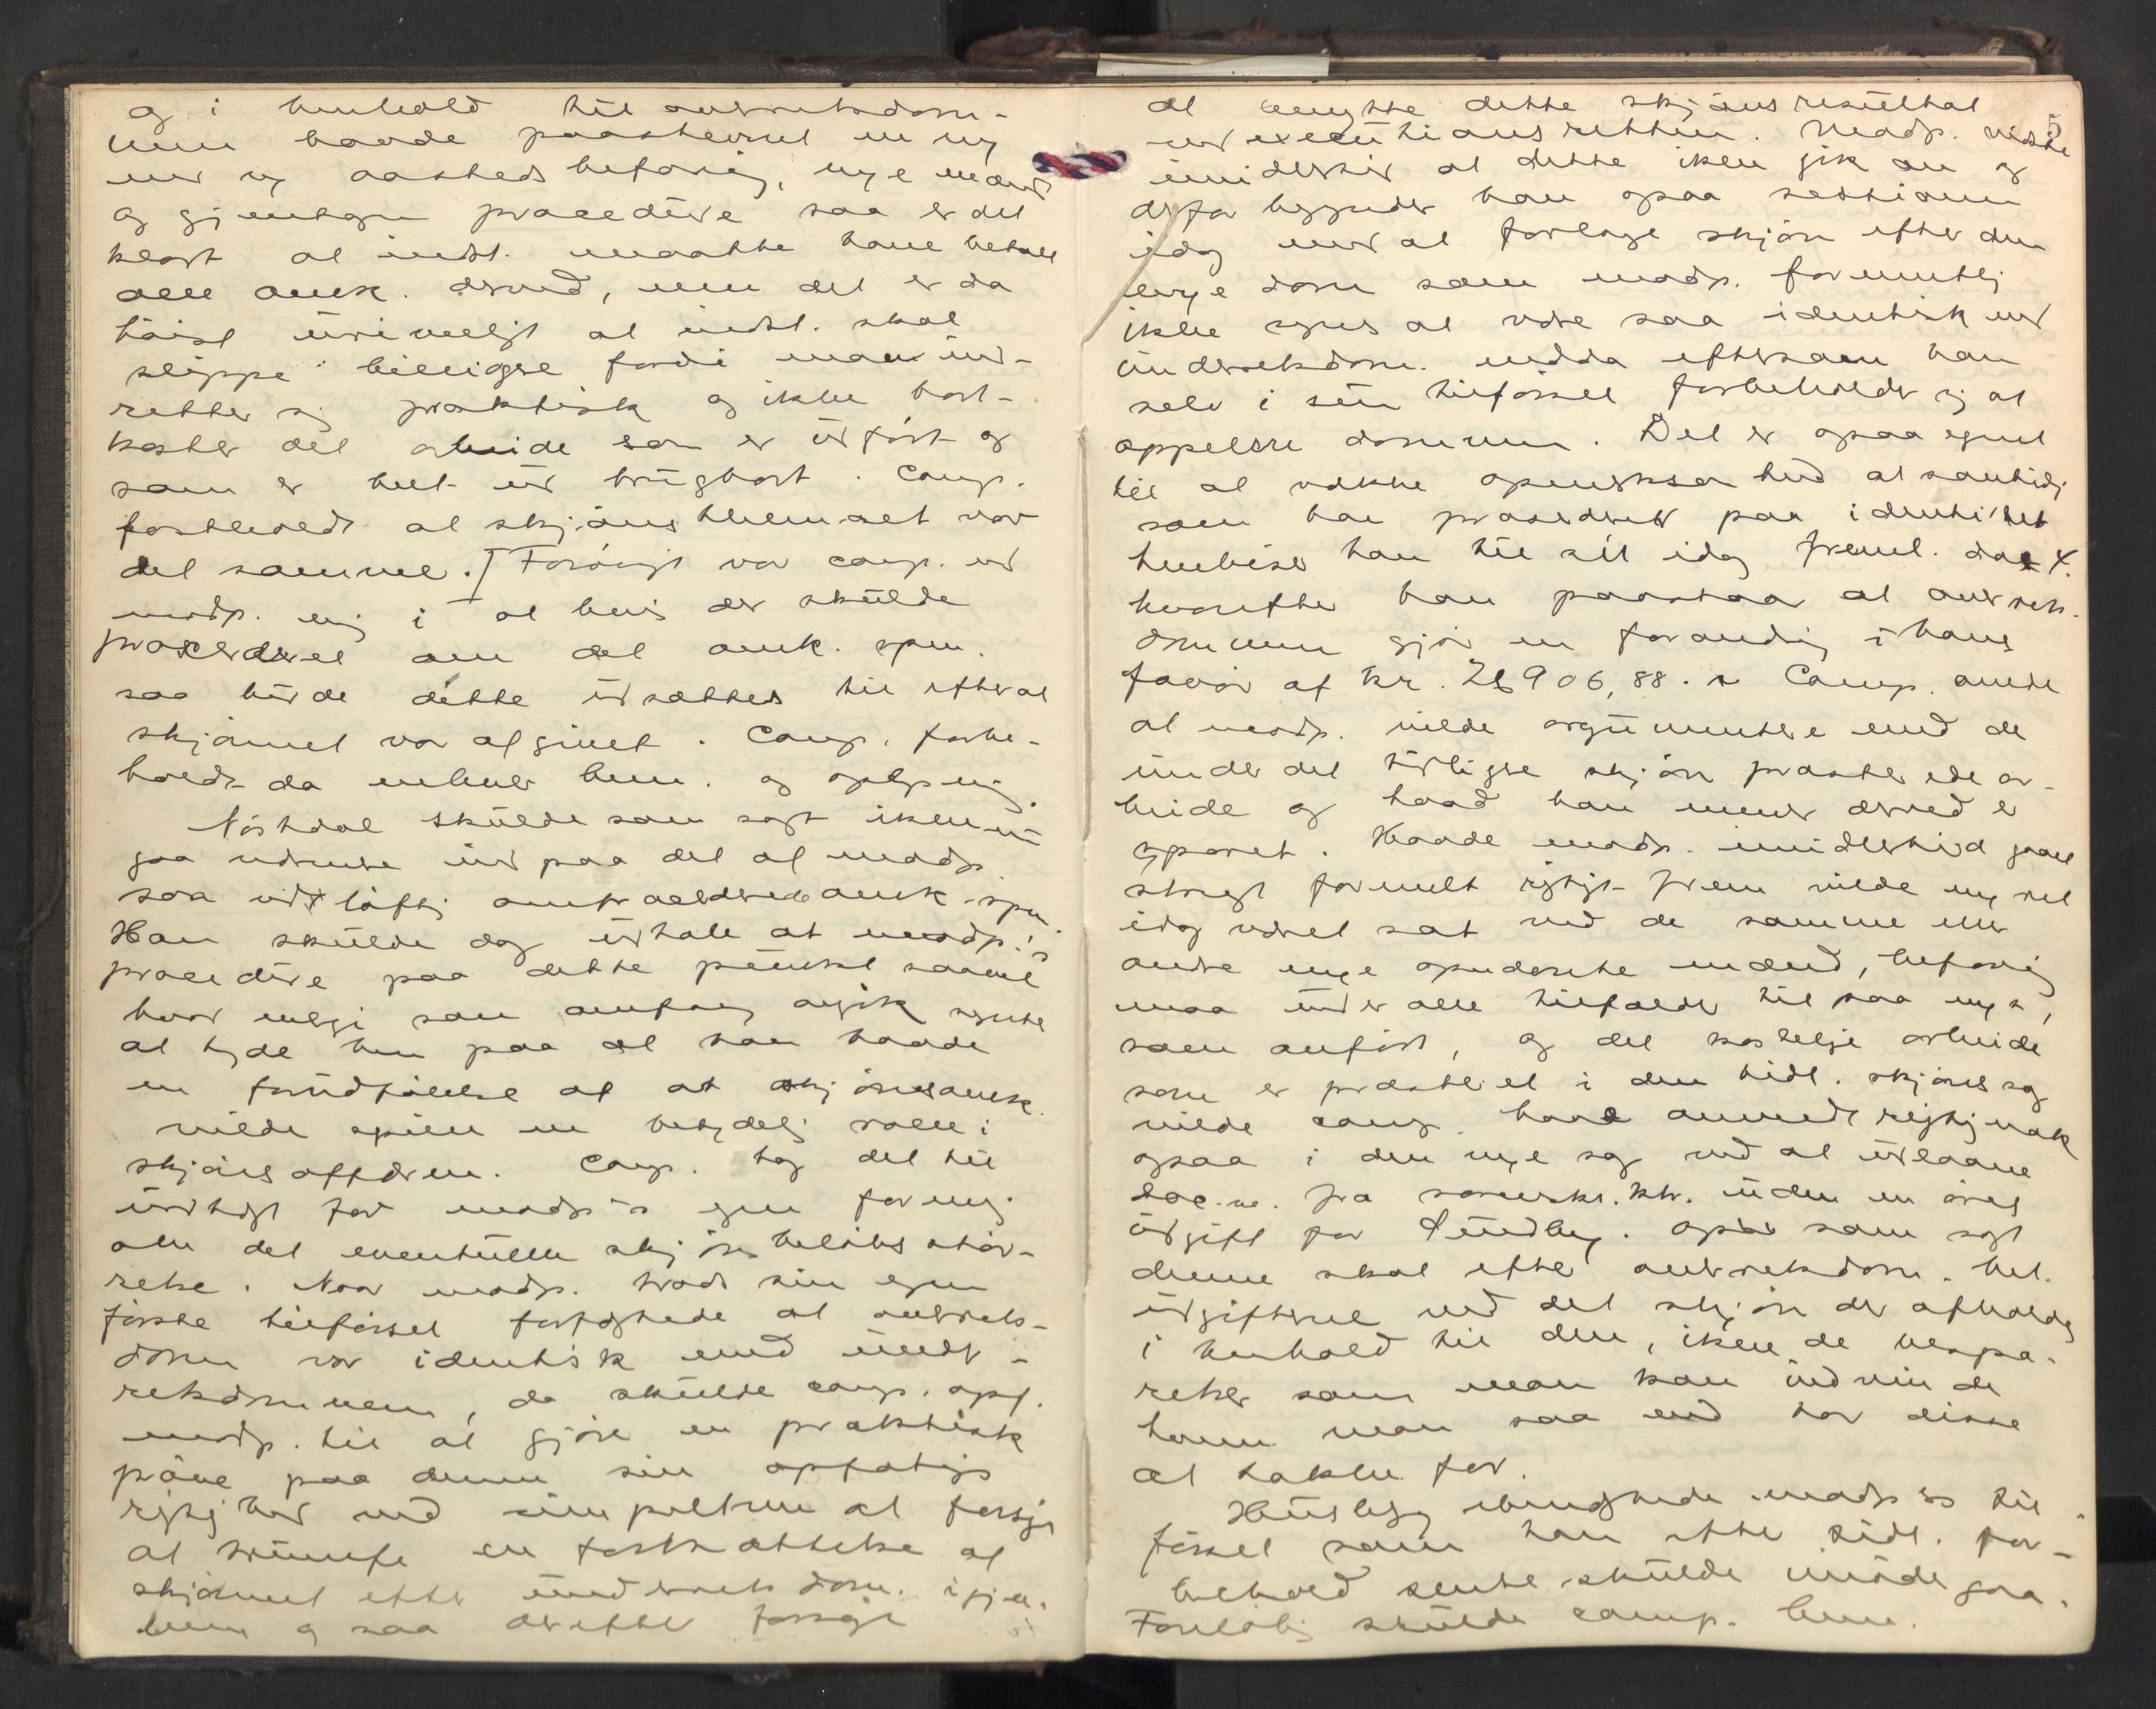 og i henhold til overretsdom-
men havde paastevnet en ny
med ny aastedsbefaring, nye mænd
og gjentagen procedure saa er det
klart at indst. maatte have betalt
alle omk. derved, men det er da
høist urimeligt at indst. skal
slippe billigere fordi man ind-
retter sig praktisk og ikke bort-
kaster det arbeide som er udført og
som er helt ud brugbart. Comp.
fastholdt at skjønsthemaet var
det samme. Forøvrigt var comp. med
modp. enig i at hvis der skulde
procederet om det omk. spm.
saa burde dette udsættes til efterat
skjønnet var afgivet. Comp. forbe-
holdt da enhver bem. og oplysning.
Nøstdal skulde som sagt ikke nu
gaa nærmere ind paa det af modp.
saa vidtløftig omprocederede omk. spm.
Han skulde dog udtale at modp.'s
procedure paa dette punkt saavel
hvor energi som omfang angik syntes
at tyde hen paa at han havde
en grundfølelse af at skjønsomk.
vilde spille en betydelig rolle i
skjønsaffæren. Comp. tog det til
indtægt for modp's egen formening
om det eventuelle skjønsbeløbs stør-
relse. Naar modp. trods sin egen
første tilførsel fastholdt at overrets-
dom var identisk med under-
retsdommen, da skulde comp. opf.
modp. til at gjøre en praktisk
prøve paa denne sin opfatnings
rigtighed ved simpelthen at forsøge
at trumfe en fortsættelse af
skjønnet efter underretsdom. igjen-
nem og saa derefter forsøge
at benytte dette skjønsresultat
ved executionsretten. Modp. vidste
imidlertid at dette ikke gik an og
derfor begynder han ogsaa sessionen
idag med at forlange skjøn efter den
nye dom som modp. formentlig
ikke synes at være saa identisk med
underretsdom. endda eftersom han
selv i sin tilførsel forbeholder sig at
appellere dommen. Det er ogsaa egnet
til at vække opmerksomhed at samtidig
som han procederer paa identitet
henviser han til sit idag freml. dok. X.
hvorefter han paastaar at overrets-
dommen gjør en forandring i hans
favør af kr. 26906,88. Comp. antok
at modp. vilde argumentere med det
under det tidligere skjøn præsterede ar-
beide og hvad han mener derved er
sparet. Havde modp. imidlertid gaaet
strengt formelt rigtigt frem vilde ny ret
idag været sat med de samme eller
andre nye opnævnte mænd, befaring
maa under alle tilfælder til paa nyt,
som anført, og det kostelige arbeide
som er præsteret i den tidl. skjønssag
vilde comp. have anvendt rigtignok
ogsaa i den nye sag ved at udlaane
doc.ne. fra sorenskr. ktr. uden en øres
udgift for Sundby. Og som sagt
denne skal efter overretsdom. bet.
udgifterne ved det skjøn der afholdes
i henhold til den, ikke de bespa-
relser som man kan indvinde
hvem man saa end har disse
at takke for.
Huslegg benegtede modp's til-
førsel som han efter tidl. for-
behold senere skulde imødegaa.
Foreløbig skulde comp. bem.